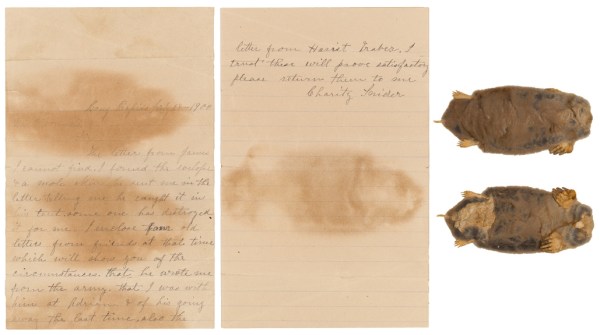 1900
The letter from James
I cannot find. I found the envelope
& a mole skin he sent me in the
letter telling me he caught it in
his tent. some one has destroyed
I enclose four old
letters from friends at that time
which will show you of the
circumstances. that he wrote me
from the army. that I was with
him at Adrian & of his going
away the last time. also the
letter from Harriet Brabea. I
trust these will prove satisfactory
please return them to me
Charity Snider